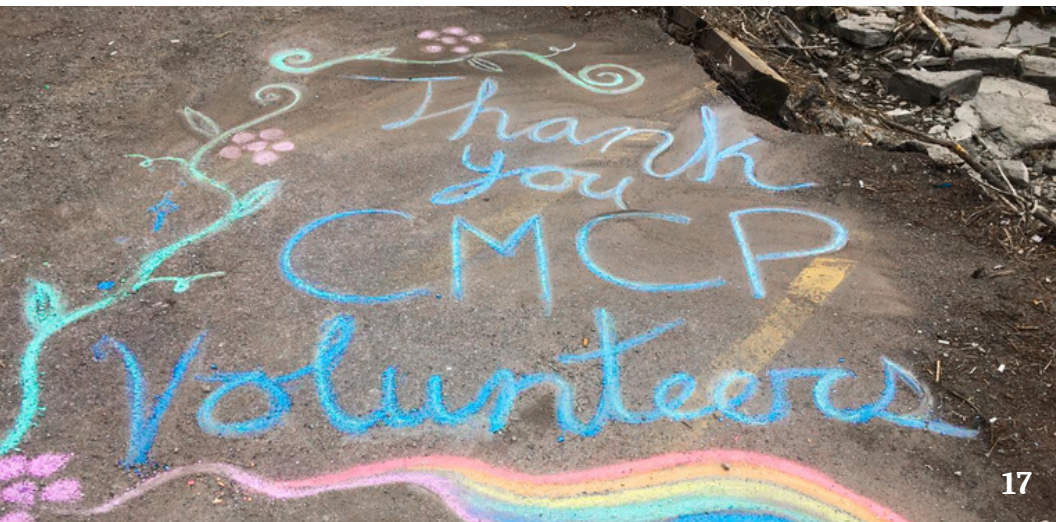 Thank
you
CMCP
Volunteers
17